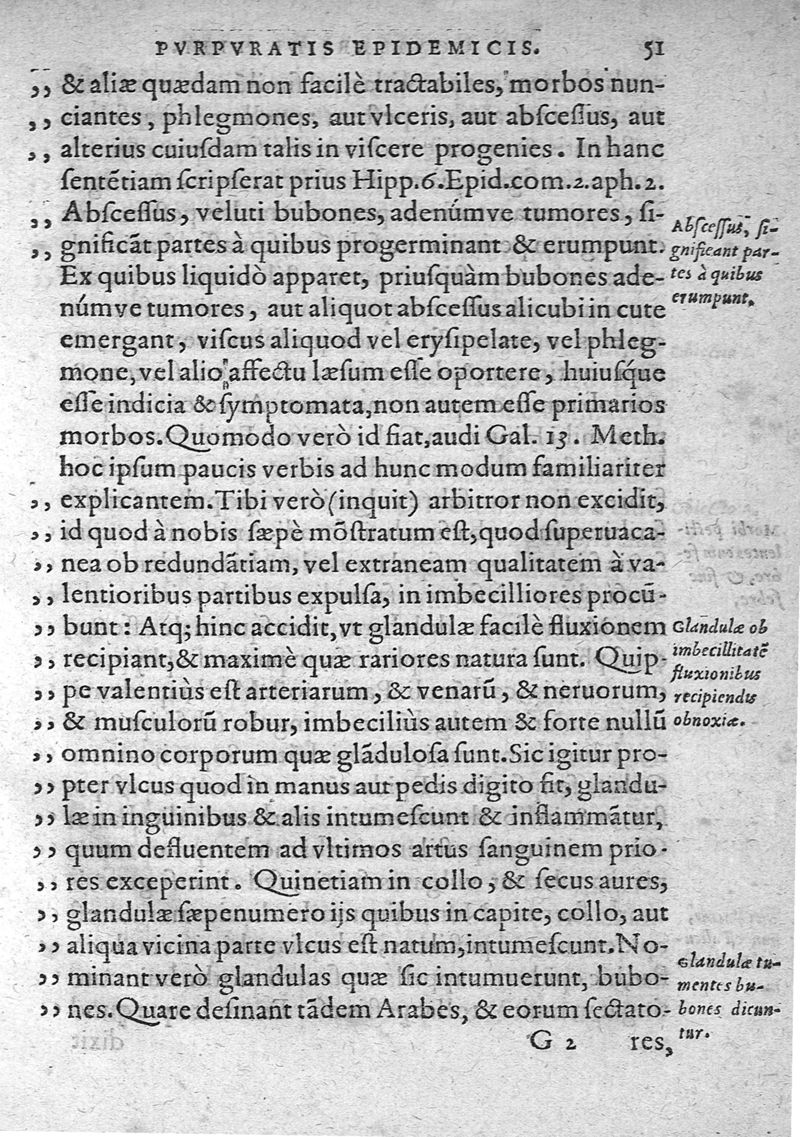 PVRPVRATIS EPIDEMICIS. 51
,, & aliæ quædam non facilè tractabiles, morbos nun-
,, ciantes, phlegmones, aut vlceris, aut abſceſſus, aut
,, alterius cuiuſdam talis in viſcere progenies. In hanc
ſentẽtiam ſcripſerat prius Hipp.6.Epid.com.2.aph.2.
,, Abſceſſus, veluti bubones, adenúmve tumores, ſi-
,, gnificãt partes à quibus progerminant & erumpunt.
Ex quibus liquidò apparet, priuſquàm bubones ade-
númve tumores, aut aliquot abſceſſus alicubi in cute
emergant, viſcus aliquod vel eryſipelate, vel phleg-
mone, vel alio affectu læſum eſſe oportere, huiuſq́ue
eſſe indicia & ſymptomata, non autem eſſe primarios
morbos. Quomodo verò id fiat, audi Gal. 13. Meth.
hoc ipſum paucis verbis ad hunc modum familiariter
,, explicantem. Tibi verò (inquit) arbitror non excidit,
,, id quod à nobis ſæpè mõſtratum eſt, quod ſuperuaca-
,, nea ob redundãtiam, vel extraneam qualitatem à va-
,, lentioribus partibus expulſa, in imbecilliores procũ-
,, bunt: Atq; hinc accidit, vt glandulæ facilè fluxionem
,, recipiant, & maximè quæ rariores natura ſunt. Quip-
,, pe valentiùs eſt arteriarum, & venarũ, & neruorum,
,, & muſculorũ robur, imbeciliùs autem & forte nullũ
,, omnino corporum quæ glãduloſa ſunt. Sic igitur pro-
,, pter vlcus quod in manus aut pedis digito fit, glandu-
,, læ in inguinibus & alis intumeſcunt & inflammãtur,
,, quum defluentem ad vltimos artus ſanguinem prio-
,, res exceperint. Quinetiam in collo, & ſecus aures,
,, glandulæ ſæpenumero ijs quibus in capite, collo, aut
,, aliqua vicina parte vlcus eſt natum, intumeſcunt. No-
,, minant verò glandulas quæ ſic intumuerunt, bubo-
,, nes. Quare deſinant tãdem Arabes, & eorum ſectato-
G 2 res,
Abſceſſus, ſi-
gnificant par-
tes à quibus
erumpunt.
Glandulæ ob
imbecillitatẽ
fluxionibus
recipiendis
obnoxiæ.
Glandulæ tu-
mentes bu-
bones dicun-
tur.